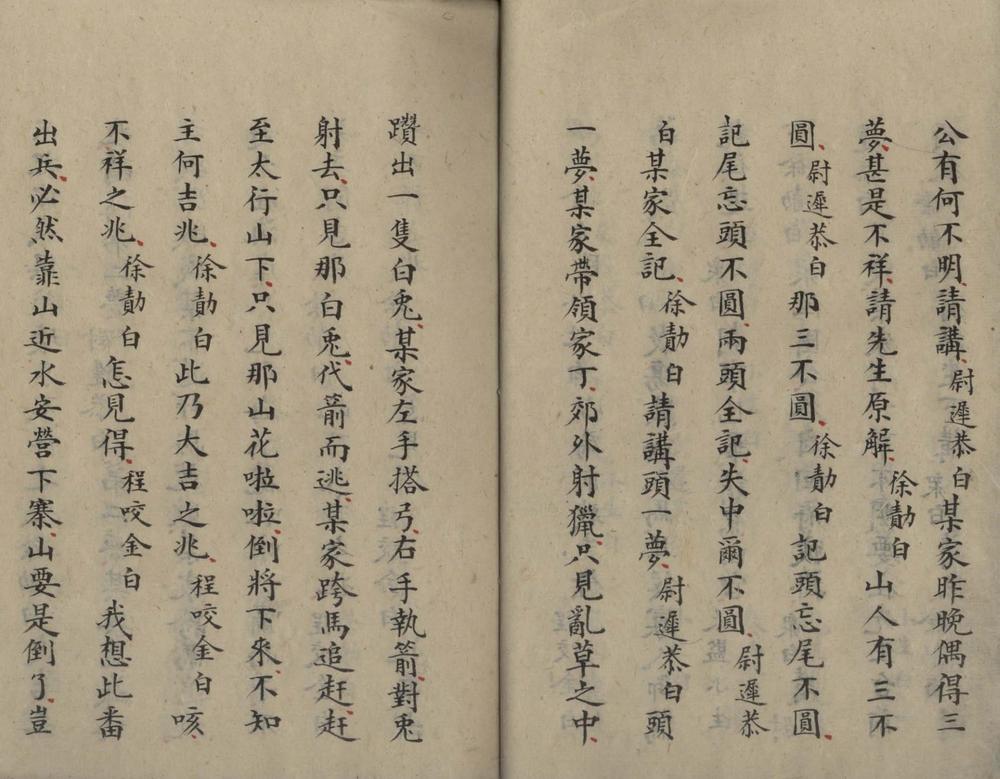 公有何不明請講尉遲恭白某家昨晚偶得三
夢甚是不祥請先生原解徐勣白山人有三不
圓尉遲恭白那三不圓徐勣白記頭忘尾不圓
記尾忘頭不圓兩頭全記失中爾不圓尉遲恭
白某家全記徐勣白請講頭一夢尉遲恭白頭
一夢某家帶領家丁郊外射獵只見亂草之中
躦出一隻白兎某家左手搭弓右手執箭對兎
射去只見那白兎代箭而逃某家跨馬追赶赶
至太行山下只見那山花啦啦倒將下來不知
主何吉兆徐勣白此乃大吉之兆程咬金白咳
不祥之兆徐勣白怎見得程咬金白我想此番
出兵必然靠山近水安營下寨山要是倒了豈